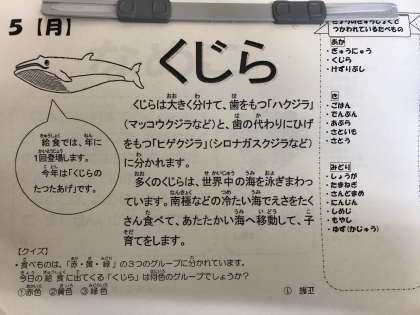 5【月】
くじら
くじらは大きく分けて、歯をもつ「ハクジラ」
(マッコウクジラなど)と、歯の代わりにひげ
をもつ「ヒゲクジラ」(シロナガスクジラなど)
に分かれます。
多くのくじらは、世界中の海を泳ぎまわっ
ています。南極などの冷たい海でえさをたく
さん食べて、あたたかい海へ移動して、子
育てをします。
給食では、年に
1回登場します。
今年は「くじらの
たつたあげ」です。
【クイズ】
・食べものは、「赤・黄・緑」の3つのグループに分かれています。
今日の給食に出てくる「くじら」は何色のグループでしょうか?
①赤色 ②黄色 ③緑色
正解 ①
つかわれているたべもの
あか
・ぎゅうにゅう
・くじら
・けずりぶし
き
・ごはん
・でんぷん
・あぶら
・さといも
・さとう
みどり
・しょうが
・たまねぎ
・さんどまめ
・にんじん
・しめじ
・もやし
・ゆず(かじゅう)